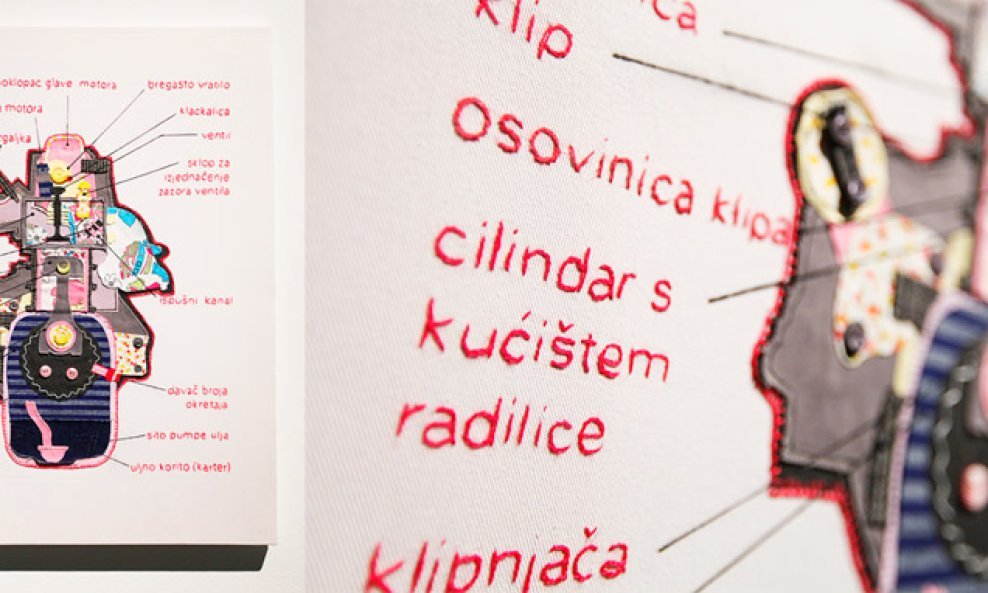 poklopac glave motora
bregasto vratilo
motora
klackalica
ventil
sklop za
izjednačenje
zazora ventila
ispušni kanal
davač broja
okretaja
sito pumpe ulja
uljno korito (karter)
klip
osovinica klipa
cilindar s
kućištem
radilice
klipnjača